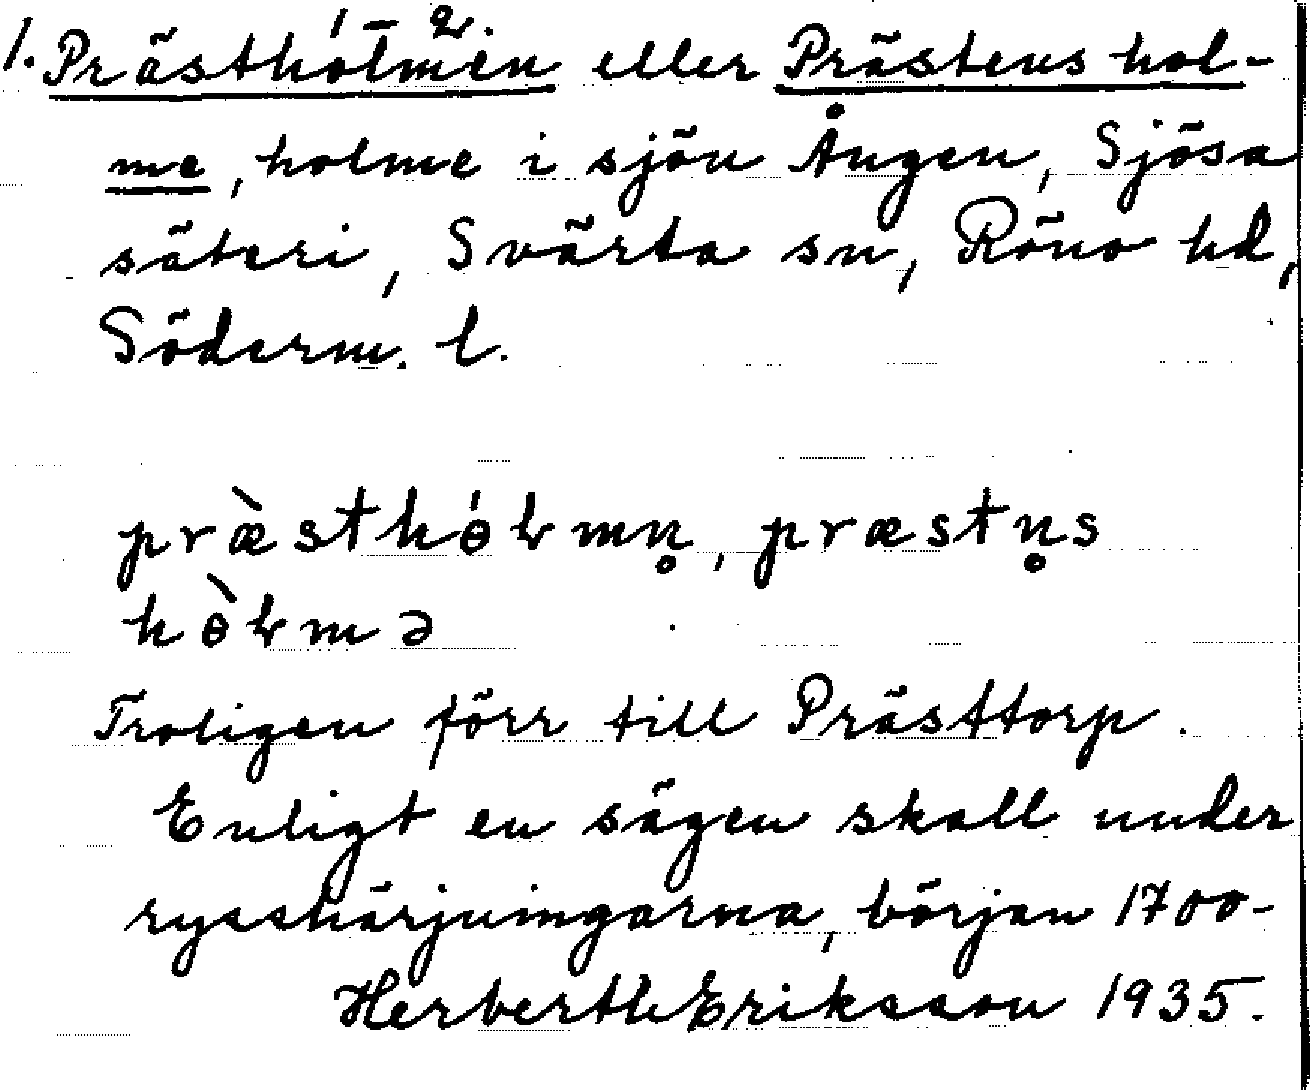 1 – 2.
1. Prästholmen eller Prästens hol-
me, holme i sjön Ången, Sjösa
säteri, Svärta sn, Röno hd,
Söderm. l.
præ̀sthɵ́ɽmn̥, præstn̥s
hɵ̀ɽmə
Troligen förr till Prästtorp.
Enligt en sägen skall under
rysshärjningarna, början 1700-
Herberth Eriksson 1935.